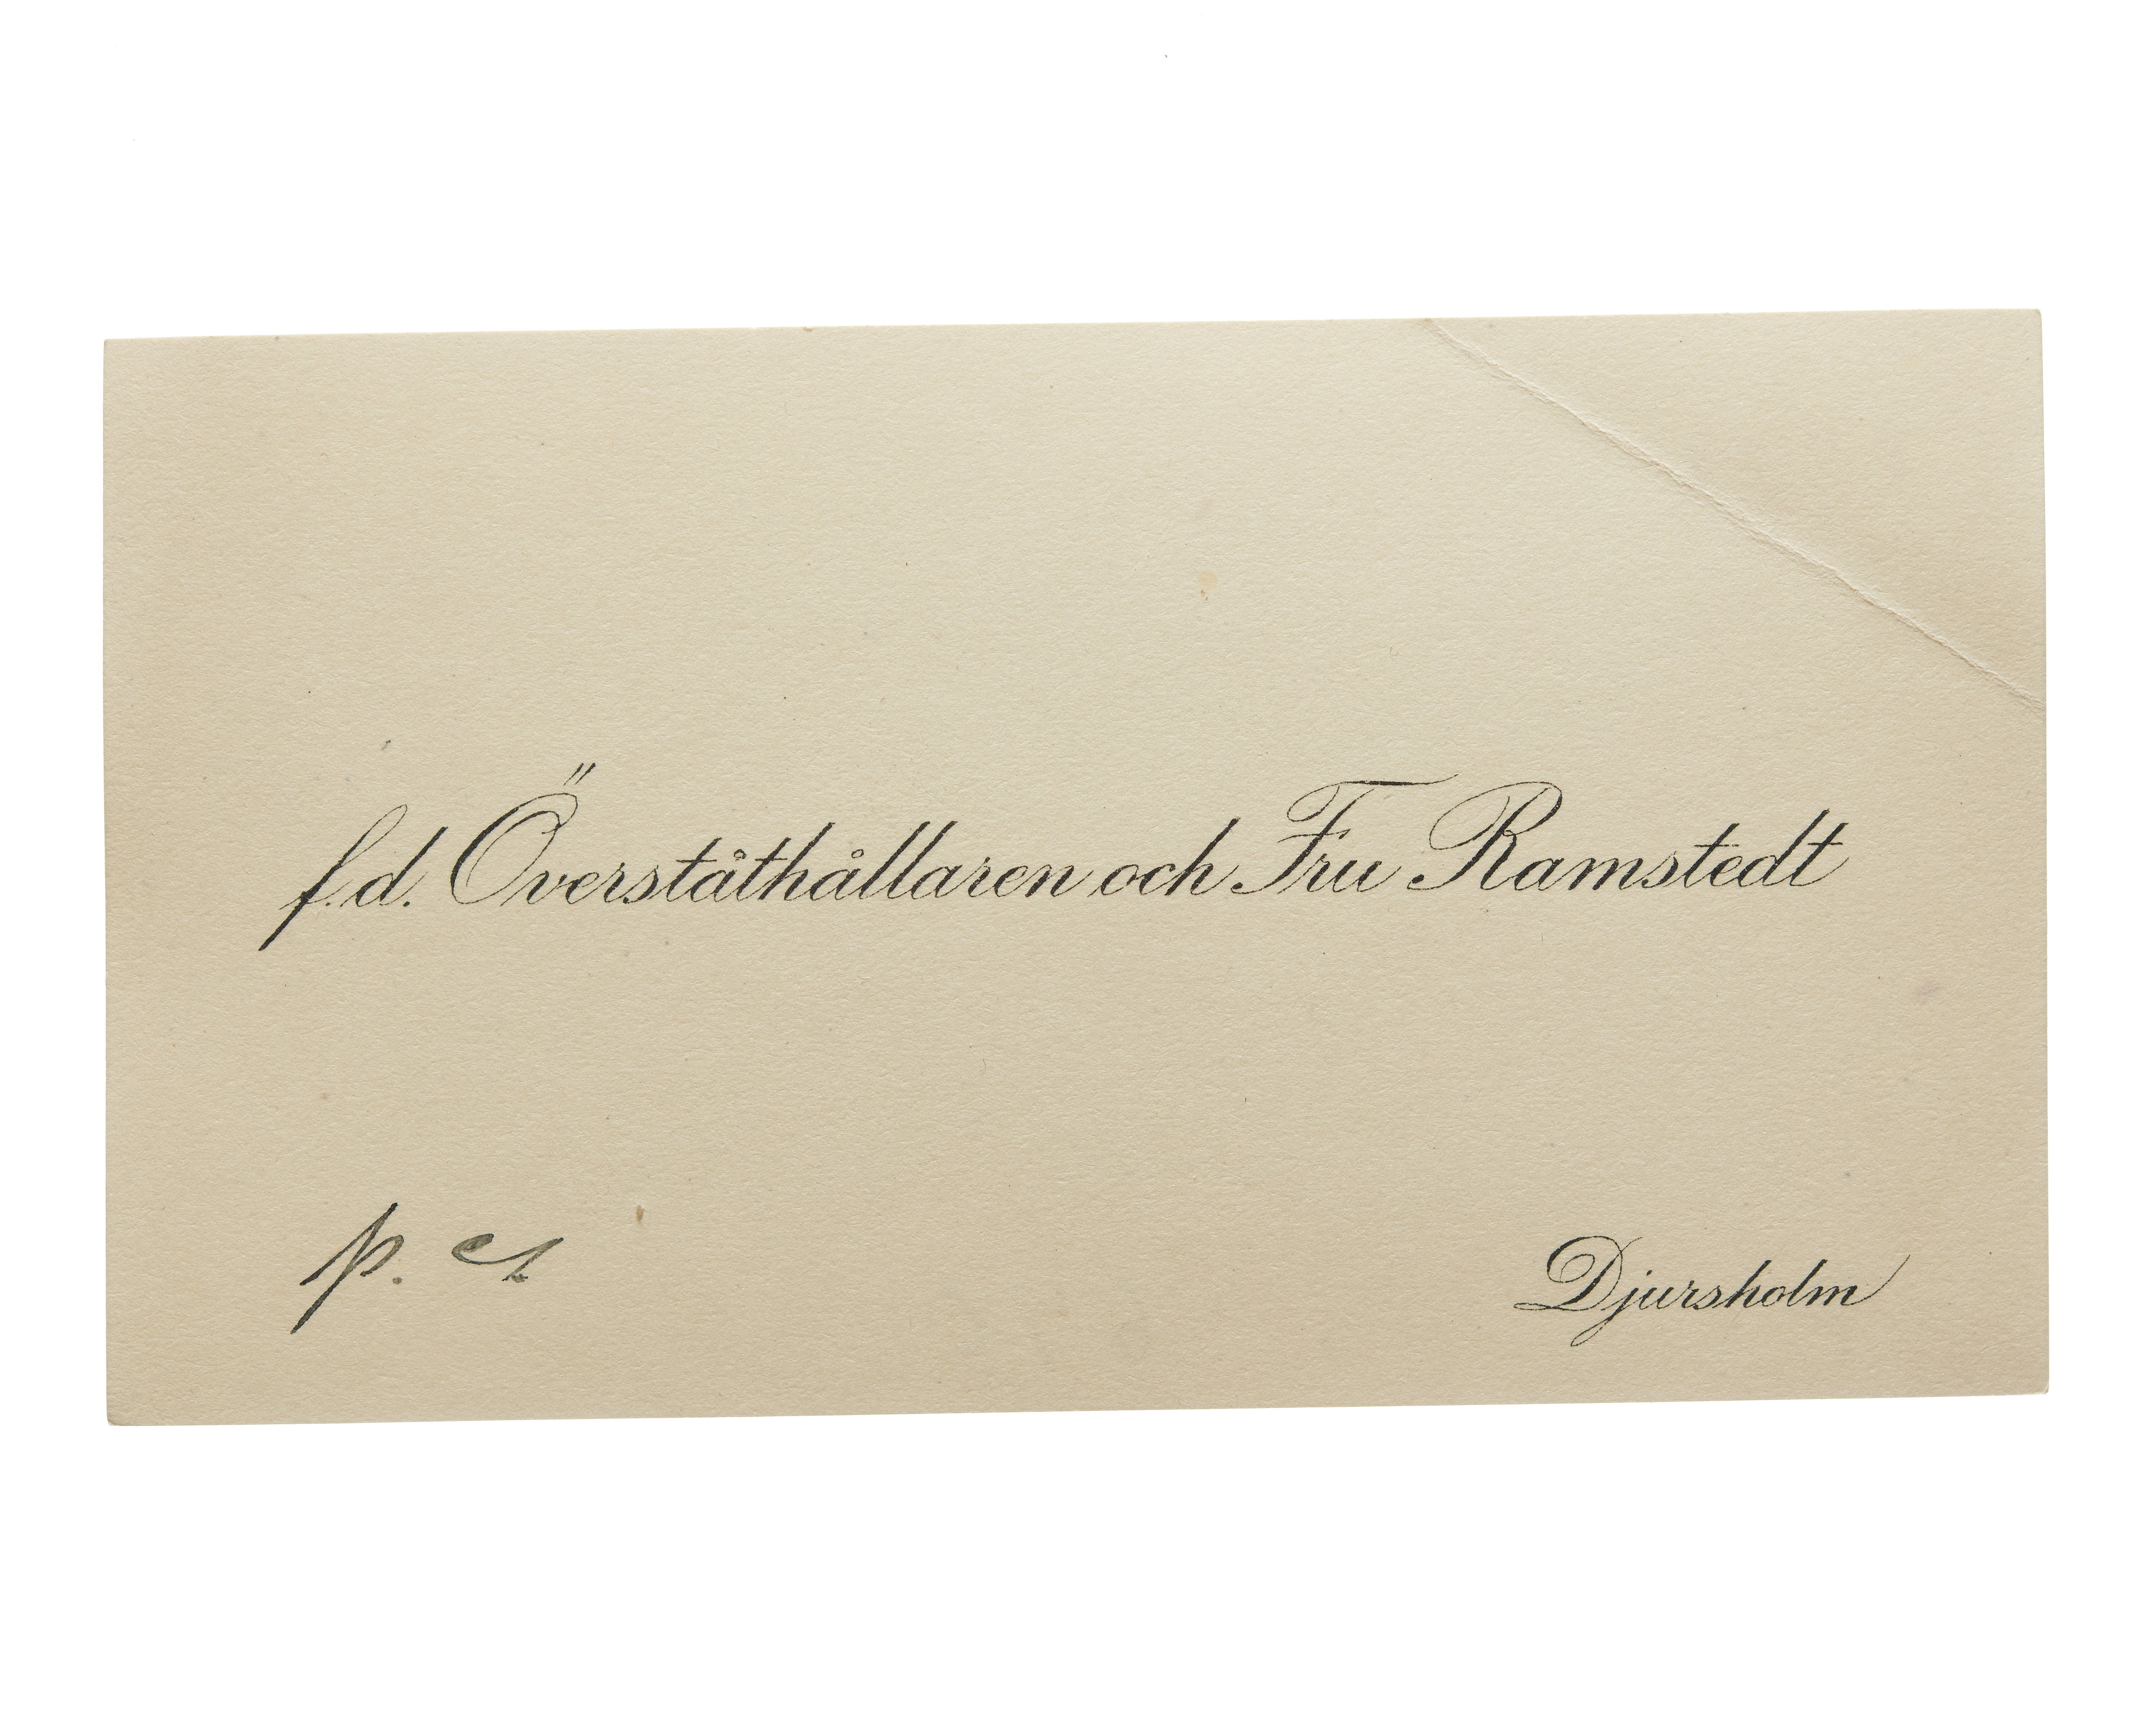 f.d. Överståthållaren och Fru Ramstedt
p.
Djursholm